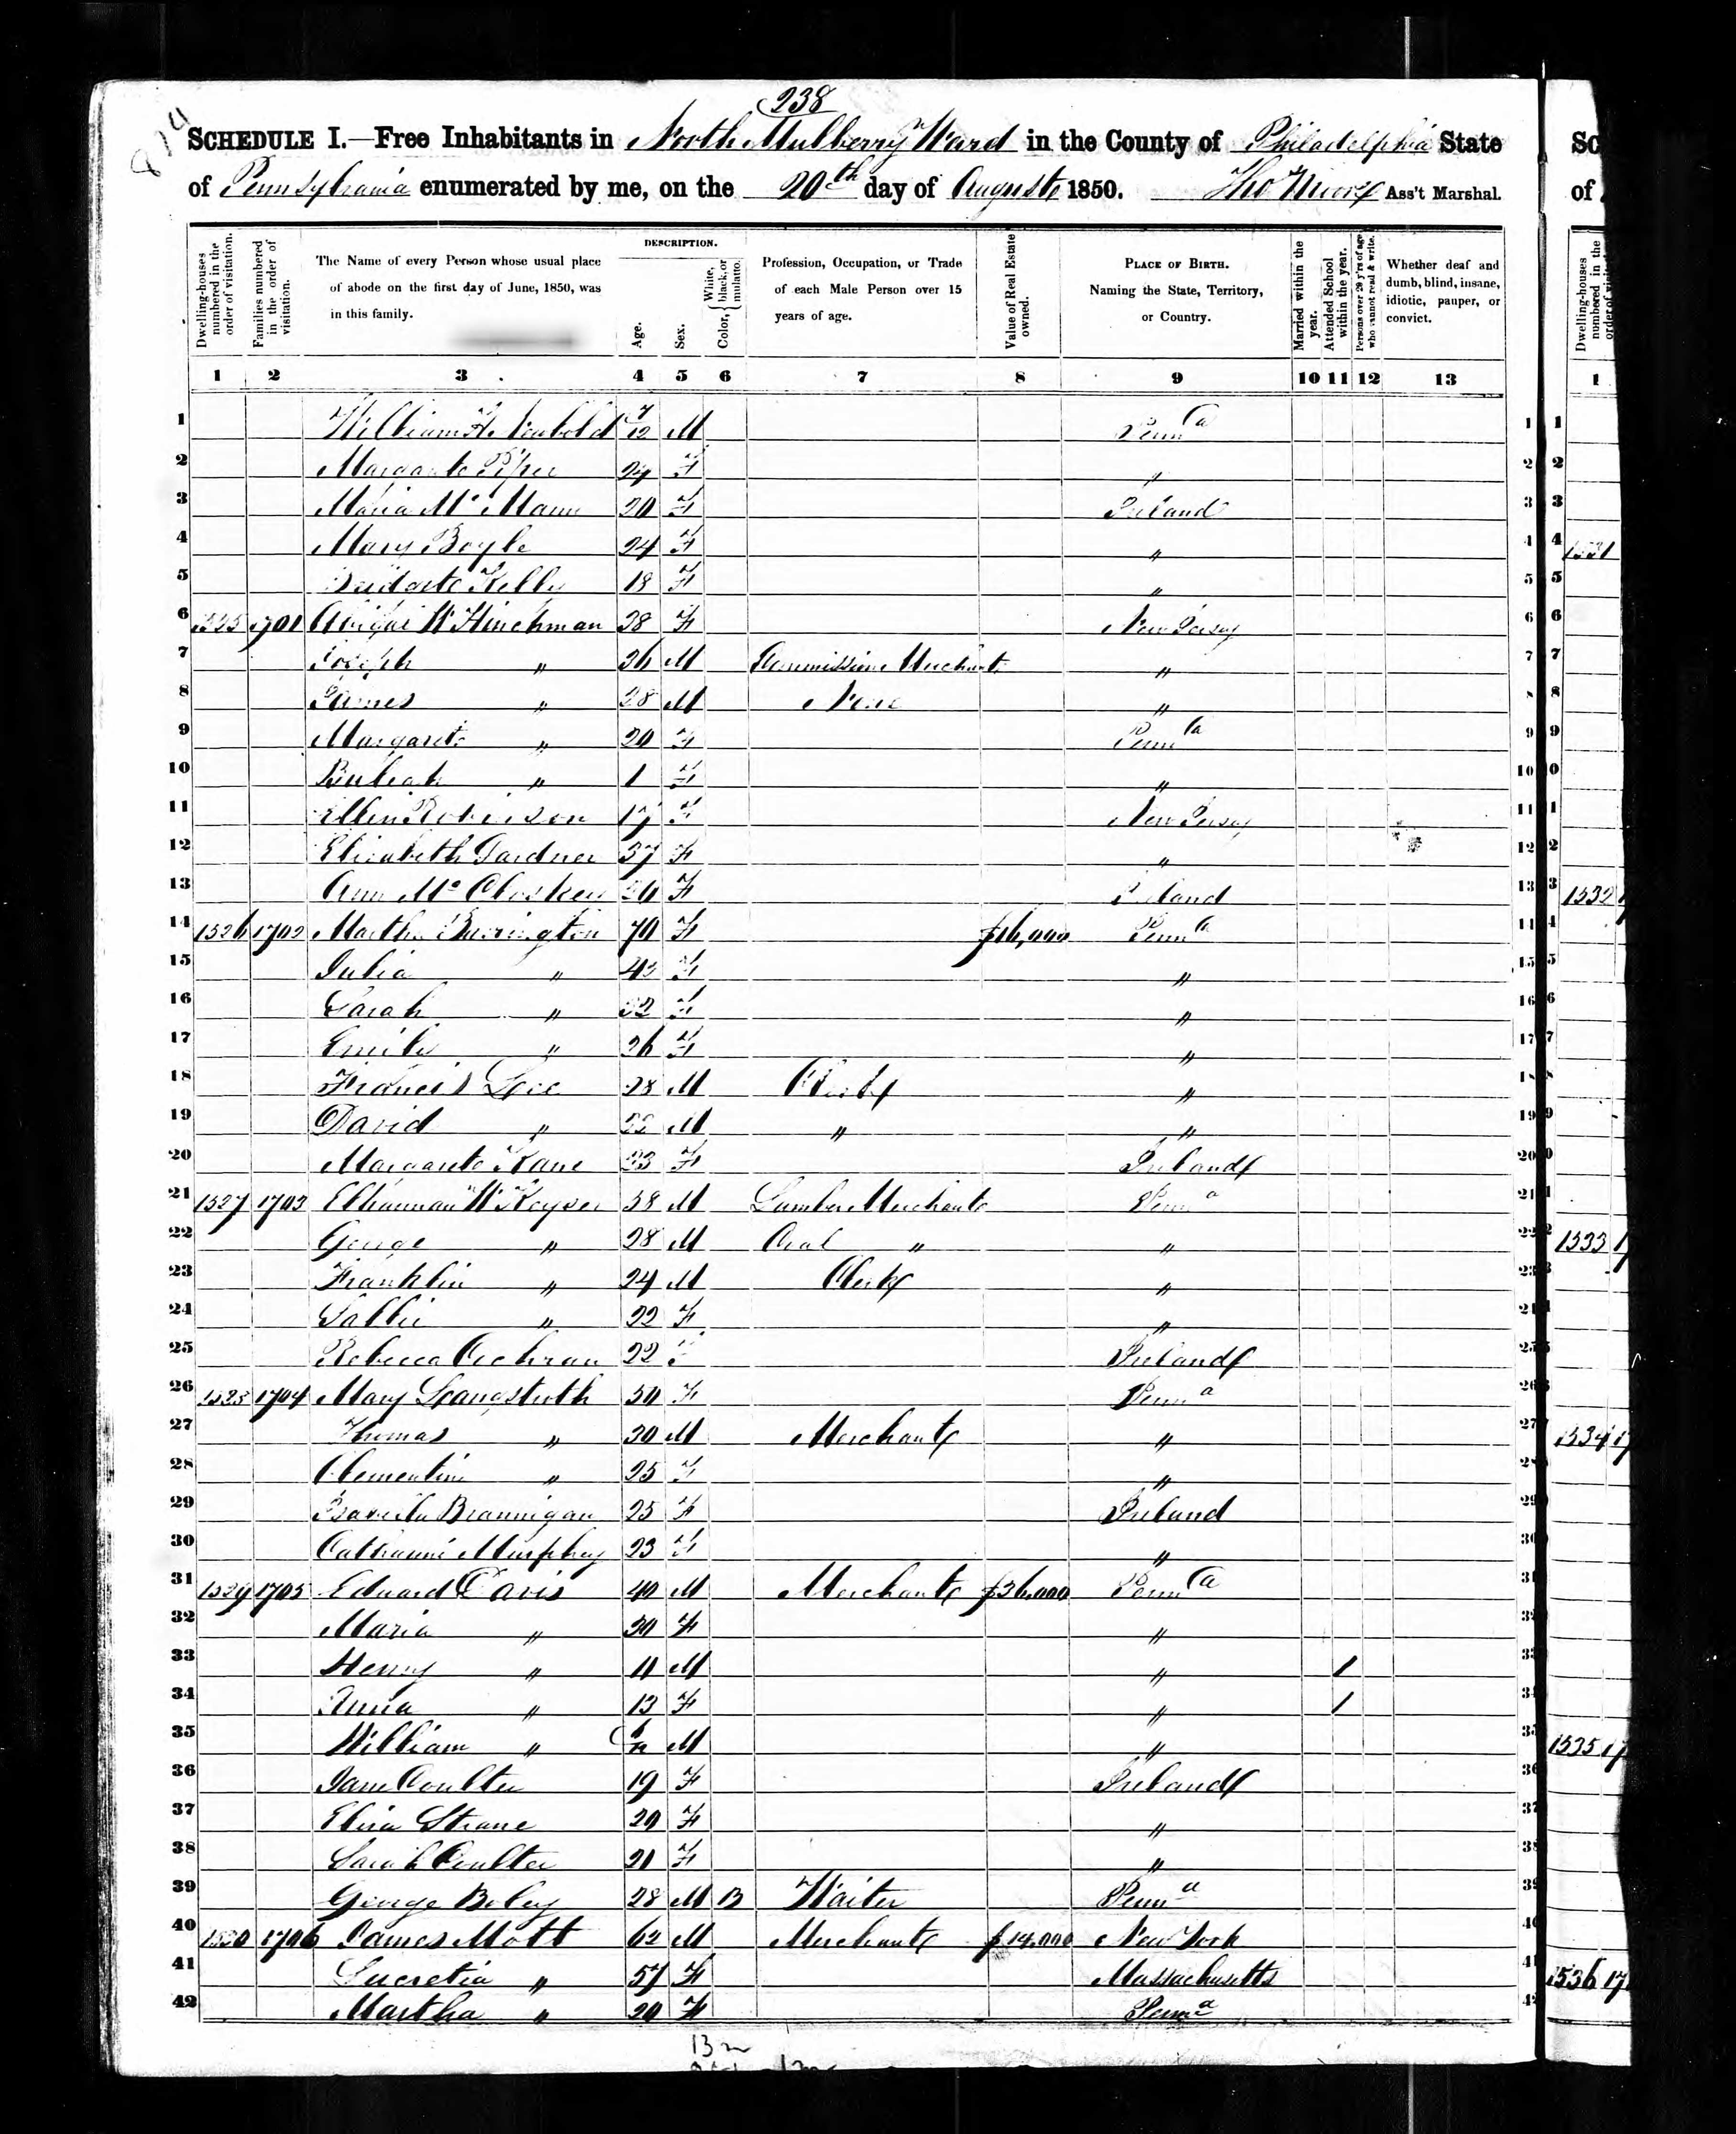 238
SCHEDULE I.—Free Inhabitants in North Mulberry Ward in the County of Philadelphia State
of Pennsylvania enumerated by me, on the 20th day of August 1850. Tho Moore Ass't Marshal.
Dwelling-houses numbered in the order of visitation.
Families numbered in the order of visitation.
The Name of every Person whose usual place of abode on the first day of June, 1850, was in this family.
DESCRIPTION.
Age.
Sex.
Color, White, black, or mulatto.
Profession, Occupation, or Trade of each Male Person over 15 years of age.
Value of Real Estate owned.
PLACE OF BIRTH. Naming the State, Territory, or Country.
Married within the year.
Attended School within the year.
Persons over 20 y'rs of age who cannot read & write.
Whether deaf and dumb, blind, insane, idiotic, pauper, or convict.
1 2 3 4 5 6 7 8 9 10 11 12 13
1 William H Newbold 7/12 M Penna 1
2 Margaret Piper 24 F " 2
3 Maria Mc Mann 20 F Ireland 3
4 Mary Boyle 24 F " 4
5 Bridget Kelly 18 F " 5
6 1525 1701 Abigal W Hinchman 28 F New Jersey 6
7 Joseph " 26 M Commission Merchant " 7
8 James " 28 M None " 8
9 Margaret " 20 F Penna 9
10 Beuleah " 1 F " 10
11 Ellen Roberson 17 F New Jersey 11
12 Elizabeth Gardner 37 F " 12
13 Ann Mc Closkey F Ireland 13
14 1526 1702 Martha Barrington 70 F $16,000 Penna 14
15 Julia " F " 15
16 Sarah " 32 F " 16
17 Emily " 26 F " 17
18 Francis Lee 28 M Clerk " 18
19 David " 22 M " " 19
20 Margaret Kane 23 F Ireland 20
21 1527 1703 Elhannan W Keyser 58 M Lumber Merchant Penna 21
22 George " 28 M Coal " " 22
23 Franklin " 24 M Clerk " 23
24 Sallie " 22 F " 24
25 Rebecca Cochran 22 F Ireland 25
26 1528 1704 Mary Langstroth 50 F Penna 26
27 Thomas " 30 M Merchant " 27
28 Clementine " 25 F " 28
29 Brannigan 25 F Ireland 29
30 Catharine Murphey 23 F " 30
31 1529 1705 Edward Davis 40 M Merchant $36,000 Penna 31
32 Maria " 30 F " 32
33 Henry " 11 M " 1
34 Anna " 13 F " 1
35 William " 6/12 M "
36 Jane Coulter 19 F Ireland
37 Eliza Strane 20 F "
38 Sarah Coulter 21 F "
39 George Boley 28 M B Waiter Penna
40 1530 1706 James Mott 62 M Merchant $14,000 New York
41 Lucretia " 57 F Massachusetts
42 Martha " 20 F Penna
13 m
Sc
of
Dwelling-houses numbered in the order of visitation
1
1531
1532
1533
1534
1535
1536